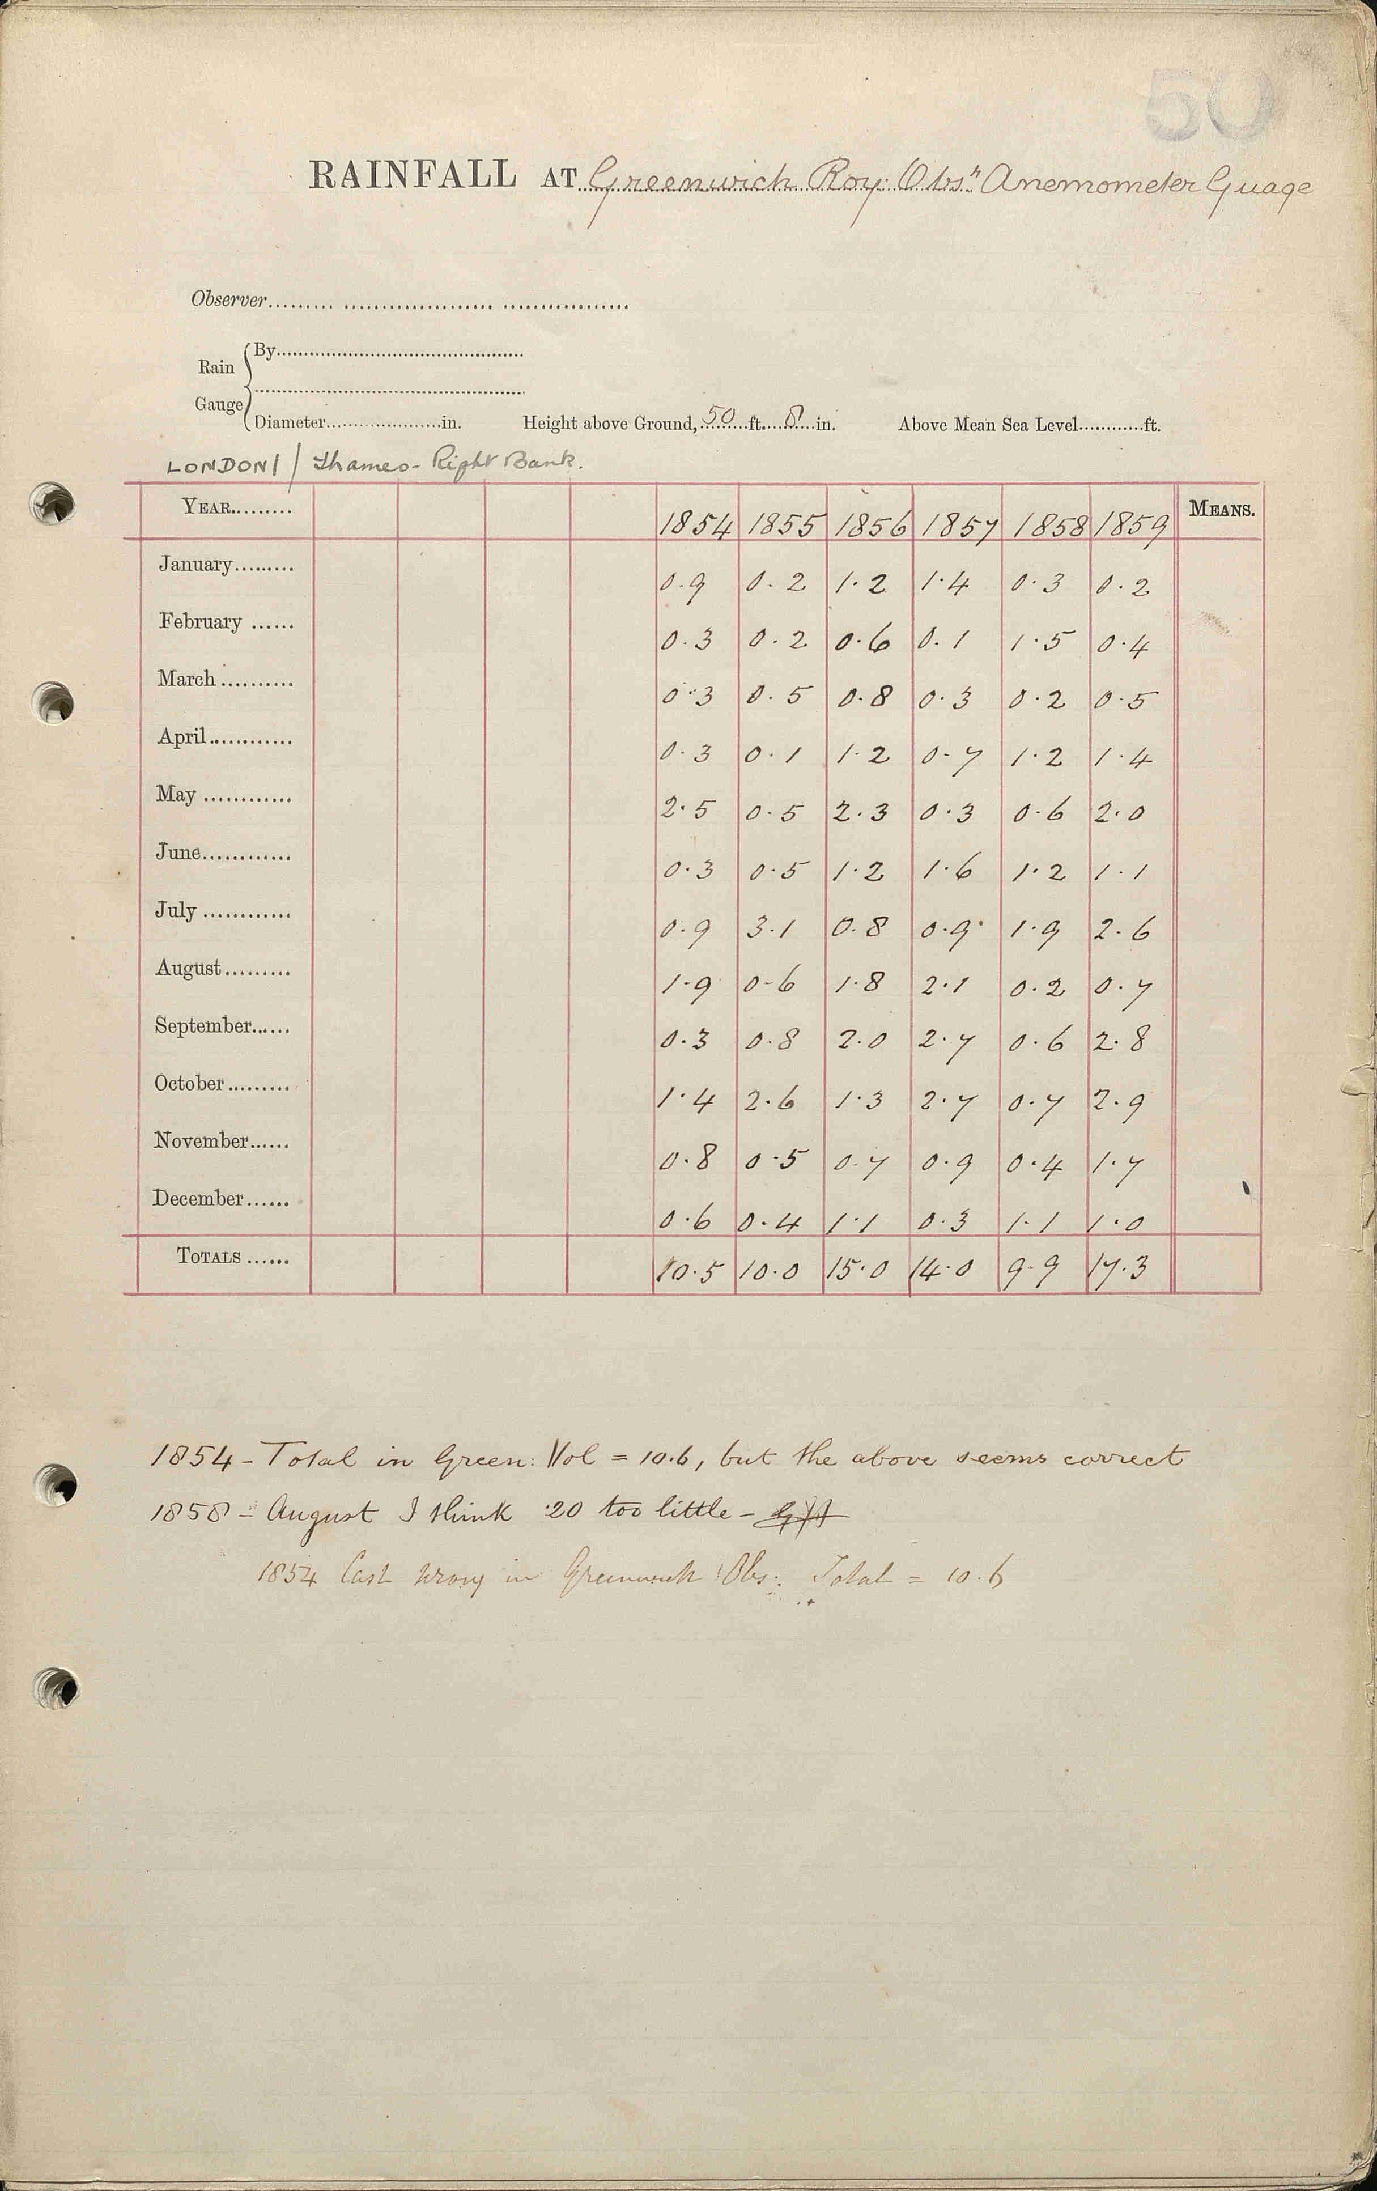 50
RAINFALL AT Greenwich Roy: Obsy Anemometer Guage
Observer
Rain Gauge { By
Diameter in. Height above Ground, 50 ft. 8 in. Above Mean Sea Level ft.
LONDON / Thames - Right Bank.
YEAR 1854 1855 1856 1857 1858 1859 MEANS.
January 0.9 0.2 1.2 1.4 0.3 0.2
February 0.3 0.2 0.6 0.1 1.5 0.4
March 0.3 0.5 0.8 0.3 0.2 0.5
April 0.3 0.1 1.2 0.7 1.2 1.4
May 2.5 0.5 2.3 0.3 0.6 2.0
June 0.3 0.5 1.2 1.6 1.2 1.1
July 0.9 3.1 0.8 0.9 1.9 2.6
August 1.9 0.6 1.8 2.1 0.2 0.7
September 0.3 0.8 2.0 2.7 0.6 2.8
October 1.4 2.6 1.3 2.7 0.7 2.9
November 0.8 0.5 0.7 0.9 0.4 1.7
December 0.6 0.4 1.1 0.3 1.1 1.0
TOTALS 10.5 10.0 15.0 14.0 9.9 17.3
1854 - Total in Green: Vol = 10.6, but the above seems correct
1858 - August I think .20 too little -
1854 Cast wrong in Greenwich Obs: Total = 10.6